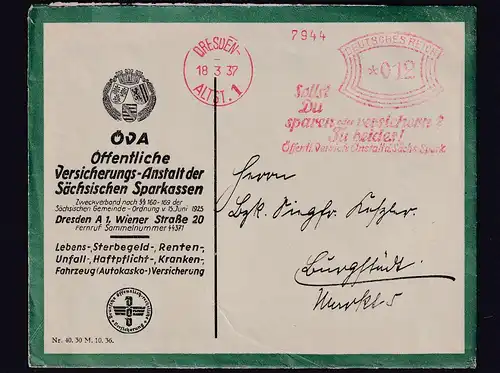 7944
DRESDEN-
18.3.37
ALTST. 1
DEUTSCHES REICH
*012
Sollst
Du
sparen oder versichern?
Tu beides!
Öffentl. Versich. Anstalt d. Sächs. Spark.
ÖVA
Öffentliche
Versicherungs-Anstalt der
Sächsischen Sparkassen
Zweckverband nach §§ 160-169 der
Sächsischen Gemeinde-Ordnung v. 15. Juni 1925
Dresden A 1, Wiener Straße 20
Fernruf Sammelnummer 44371
Lebens-, Sterbegeld-, Renten-,
Unfall-, Haftpflicht-, Kranken-,
Fahrzeug (Autokasko-) Versicherung
Nr. 40. 30 M. 10. 36.
Herrn
Siegfr.
Burgstädt
Markt 5